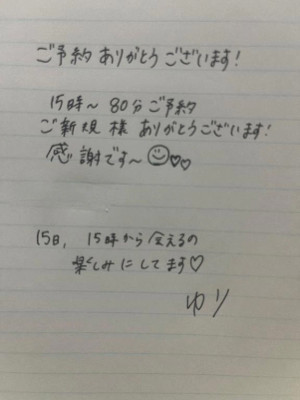 ご予約ありがとうございます!
15時〜80分ご予約
ご新規様ありがとうございます!
感謝です〜☺♡♡
15日, 15時から会えるの
楽しみにしてます♡
ゆり